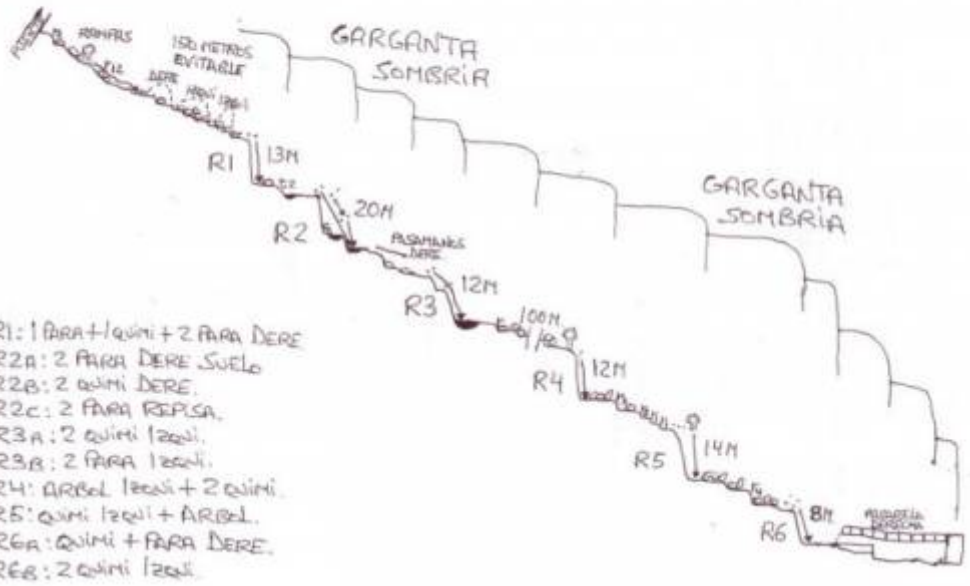 RAMPAS
R12
150 METROS
EVITABLE
DERE
IZQUI IZQUI
GARGANTA
SOMBRIA
R1
13M
R2
20M
PASAMANOS
DERE
R3
12M
100M
GARGANTA
SOMBRIA
R4
12M
R5
14M
R6
8M
R1: 1 PARA + 1 QUIMI + 2 PARA DERE
R2A: 2 PARA DERE SUELO
R2B: 2 QUIMI DERE.
R2C: 2 PARA REPISA.
R3A: 2 QUIMI IZQUI.
R3B: 2 PARA IZQUI.
R4: ARBOL IZQUI + 2 QUIMI.
R5: QUIMI IZQUI + ARBOL.
R6A: QUIMI + PARA DERE.
R6B: 2 QUIMI IZQUI.